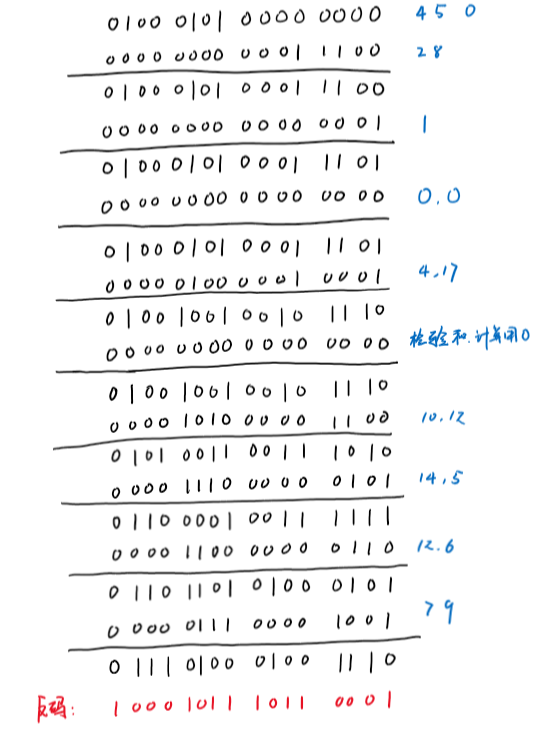 0100 0101 0000 0000 4 5 0
0000 0000 0001 1100 28
0100 0101 0001 1100
0000 0000 0000 0001 1
0100 0101 0001 1101
0000 0000 0000 0000 0.0
0100 0101 0001 1101
0000 0100 0001 0001 4.17
0100 1001 0010 1110
0000 0000 0000 0000 检验和.计算用0
0100 1001 0010 1110
0000 1010 0000 1100 10.12
0101 0011 0011 1010
0000 1110 0000 0101 14.5
0110 0001 0011 1111
0000 1100 0000 0110 12.6
0110 1101 0100 0101
0000 0111 0000 1001 7 9
0111 0100 0100 1110
反码: 1000 1011 1011 0001